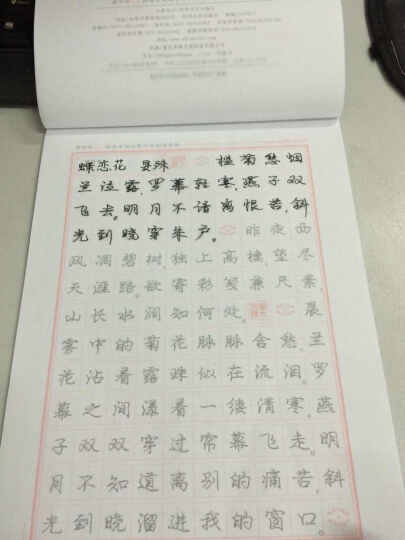 蝶恋花 晏殊 槛菊愁烟
兰泣露,罗幕轻寒,燕子双
飞去。明月不谙离恨苦,斜
光到晓穿朱户。 昨夜西
风凋碧树,独上高楼,望尽
天涯路。欲寄彩笺兼尺素,
山长水阔知何处。 晨
雾中的菊花脉脉含愁,兰
花沾着露珠似在流泪。罗
幕之间漾着一缕清寒。燕
子双双穿过帘幕飞走。明
月不知道离别的痛苦,斜
光到晓溜进我的窗口。